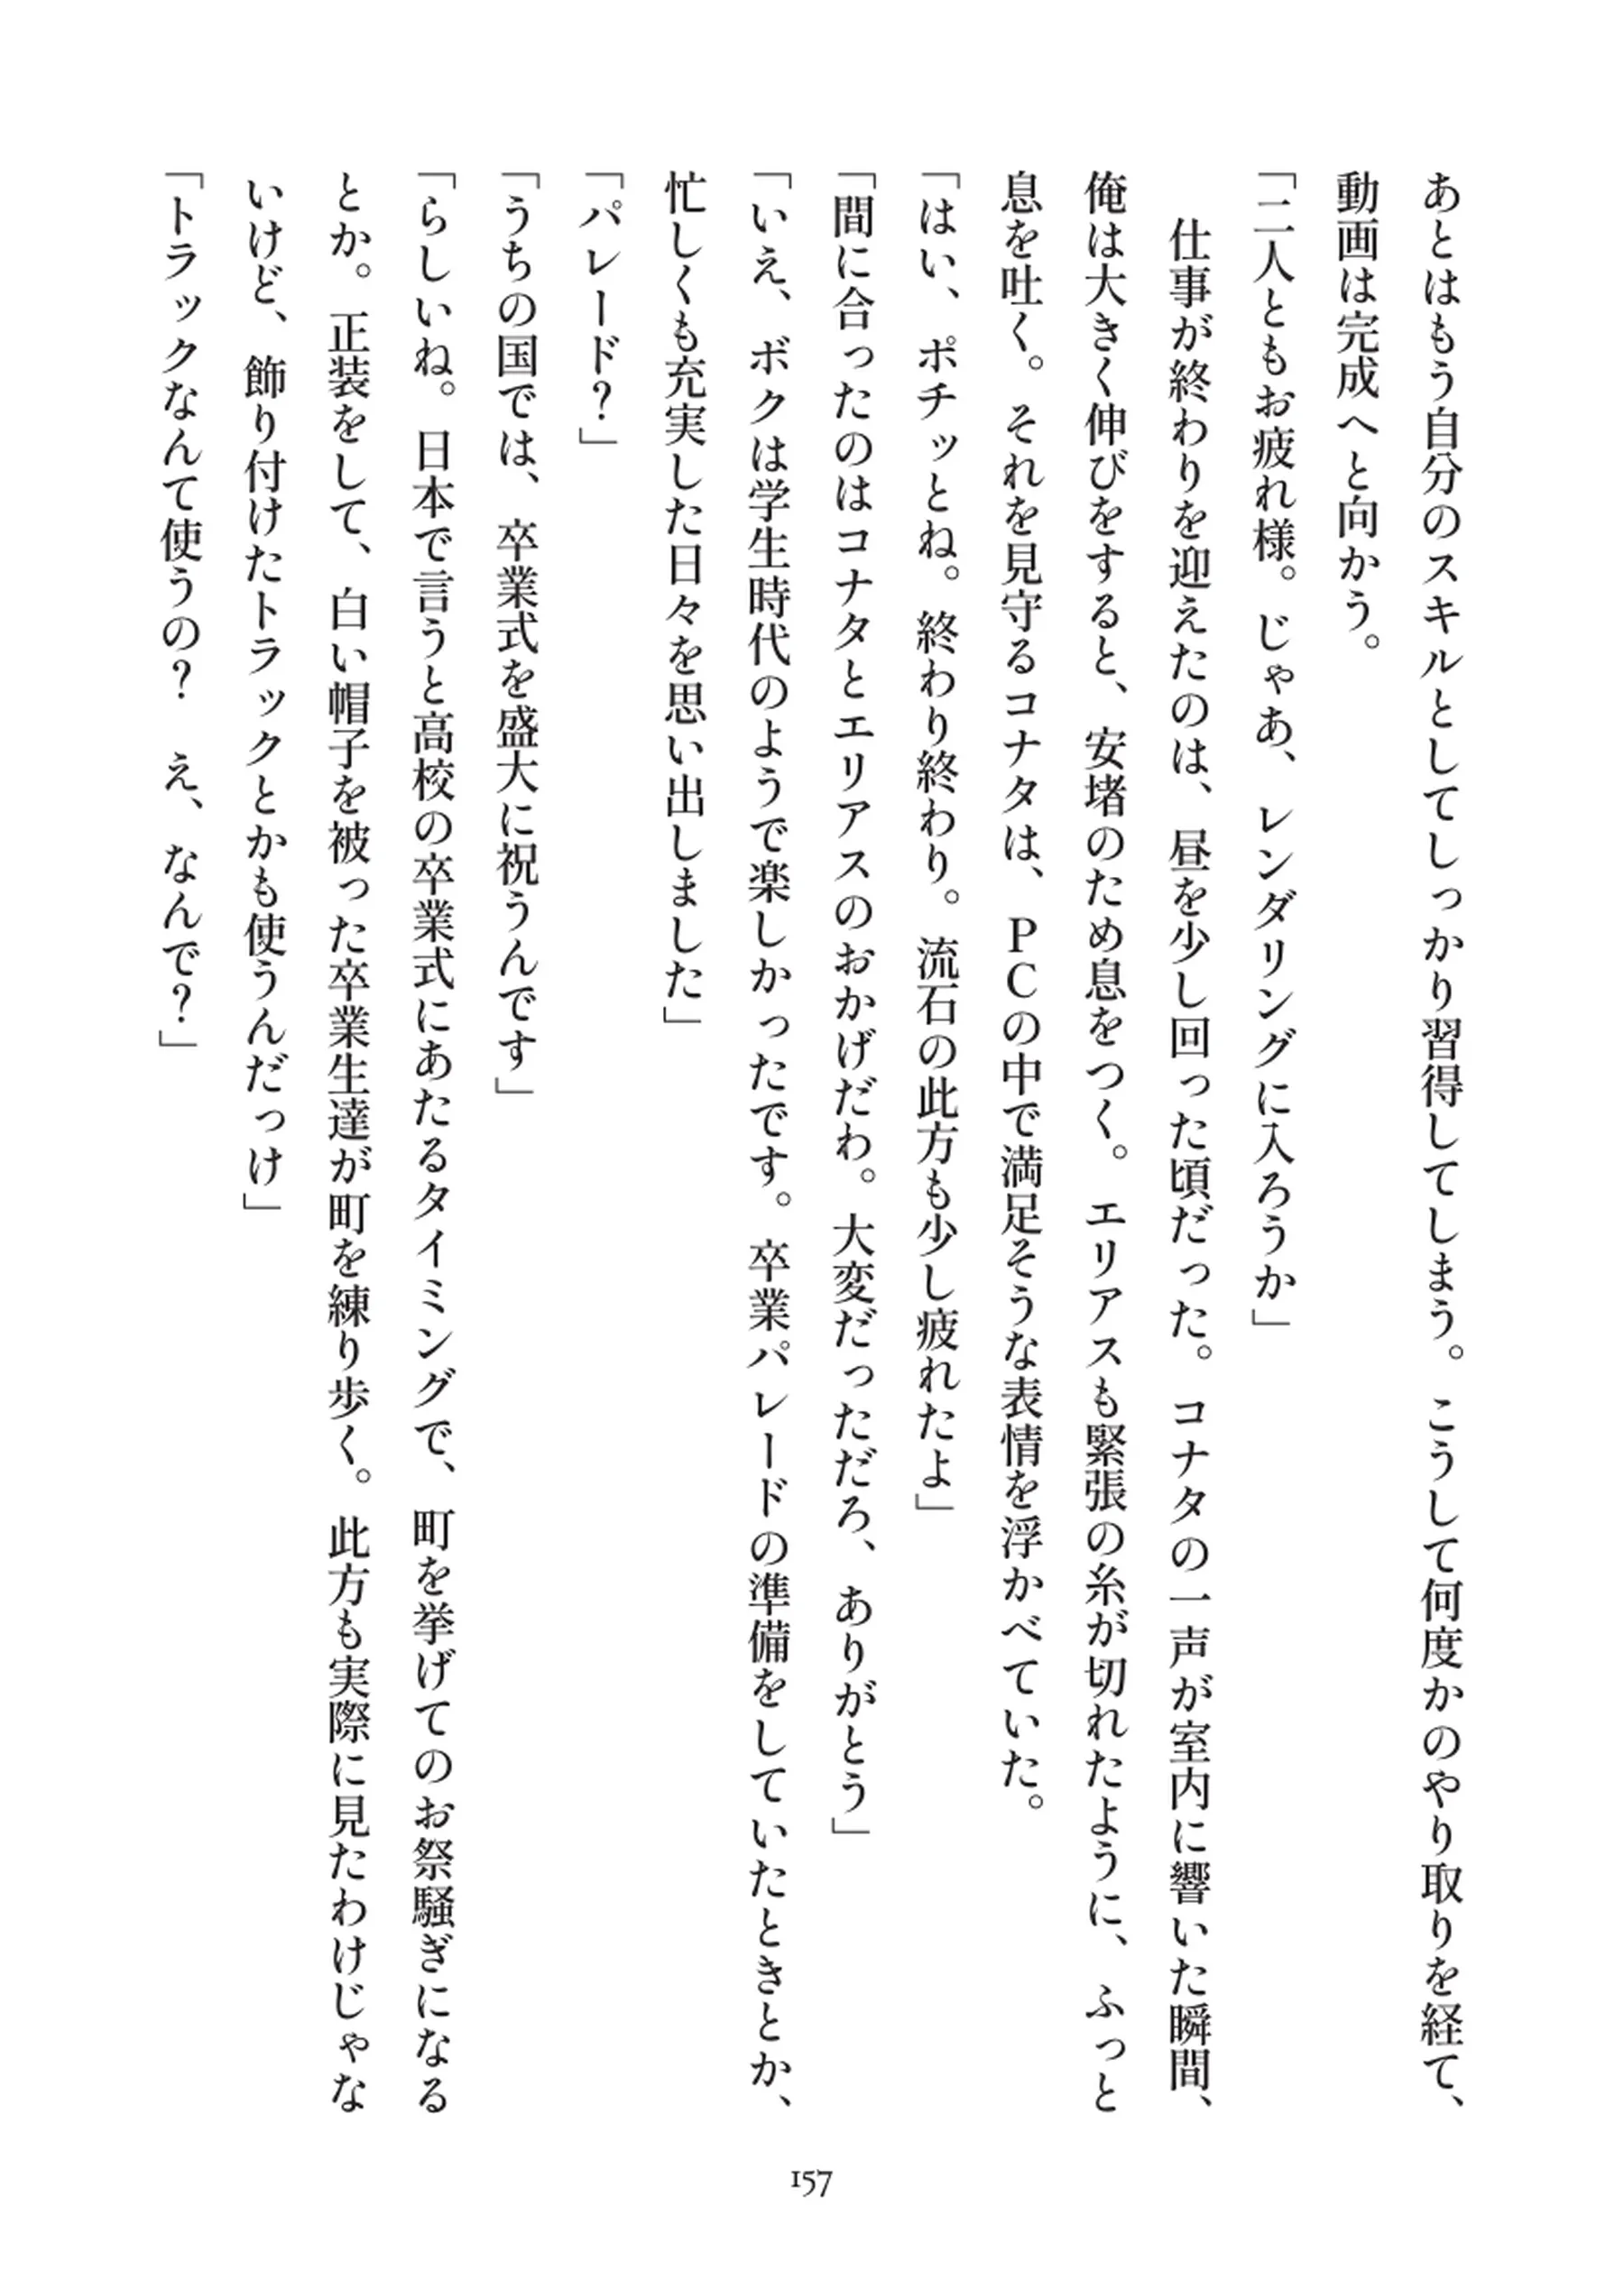 あとはもう自分のスキルとしてしっかり習得してしまう。こうして何度かのやり取りを経て、
動画は完成へと向かう。
「二人ともお疲れ様。じゃあ、レンダリングに入ろうか」
　仕事が終わりを迎えたのは、昼を少し回った頃だった。コナタの一声が室内に響いた瞬間、
俺は大きく伸びをすると、安堵のため息をつく。エリアスも緊張の糸が切れたように、ふっと
息を吐く。それを見守るコナタは、PCの中で満足そうな表情を浮かべていた。
「はい、ポチッとね。終わり終わり。流石の此方も少し疲れたよ」
「間に合ったのはコナタとエリアスのおかげだわ。大変だっただろ、ありがとう」
「いえ、ボクは学生時代のようで楽しかったです。卒業パレードの準備をしていたときとか、
忙しくも充実した日々を思い出しました」
「パレード？」
「うちの国では、卒業式を盛大に祝うんです」
「らしいね。日本で言うと高校の卒業式にあたるタイミングで、町を挙げてのお祭騒ぎになる
とか。正装をして、白い帽子を被った卒業生達が町を練り歩く。此方も実際に見たわけじゃな
いけど、飾り付けたトラックとかも使うんだっけ」
「トラックなんて使うの？　え、なんで？」
157